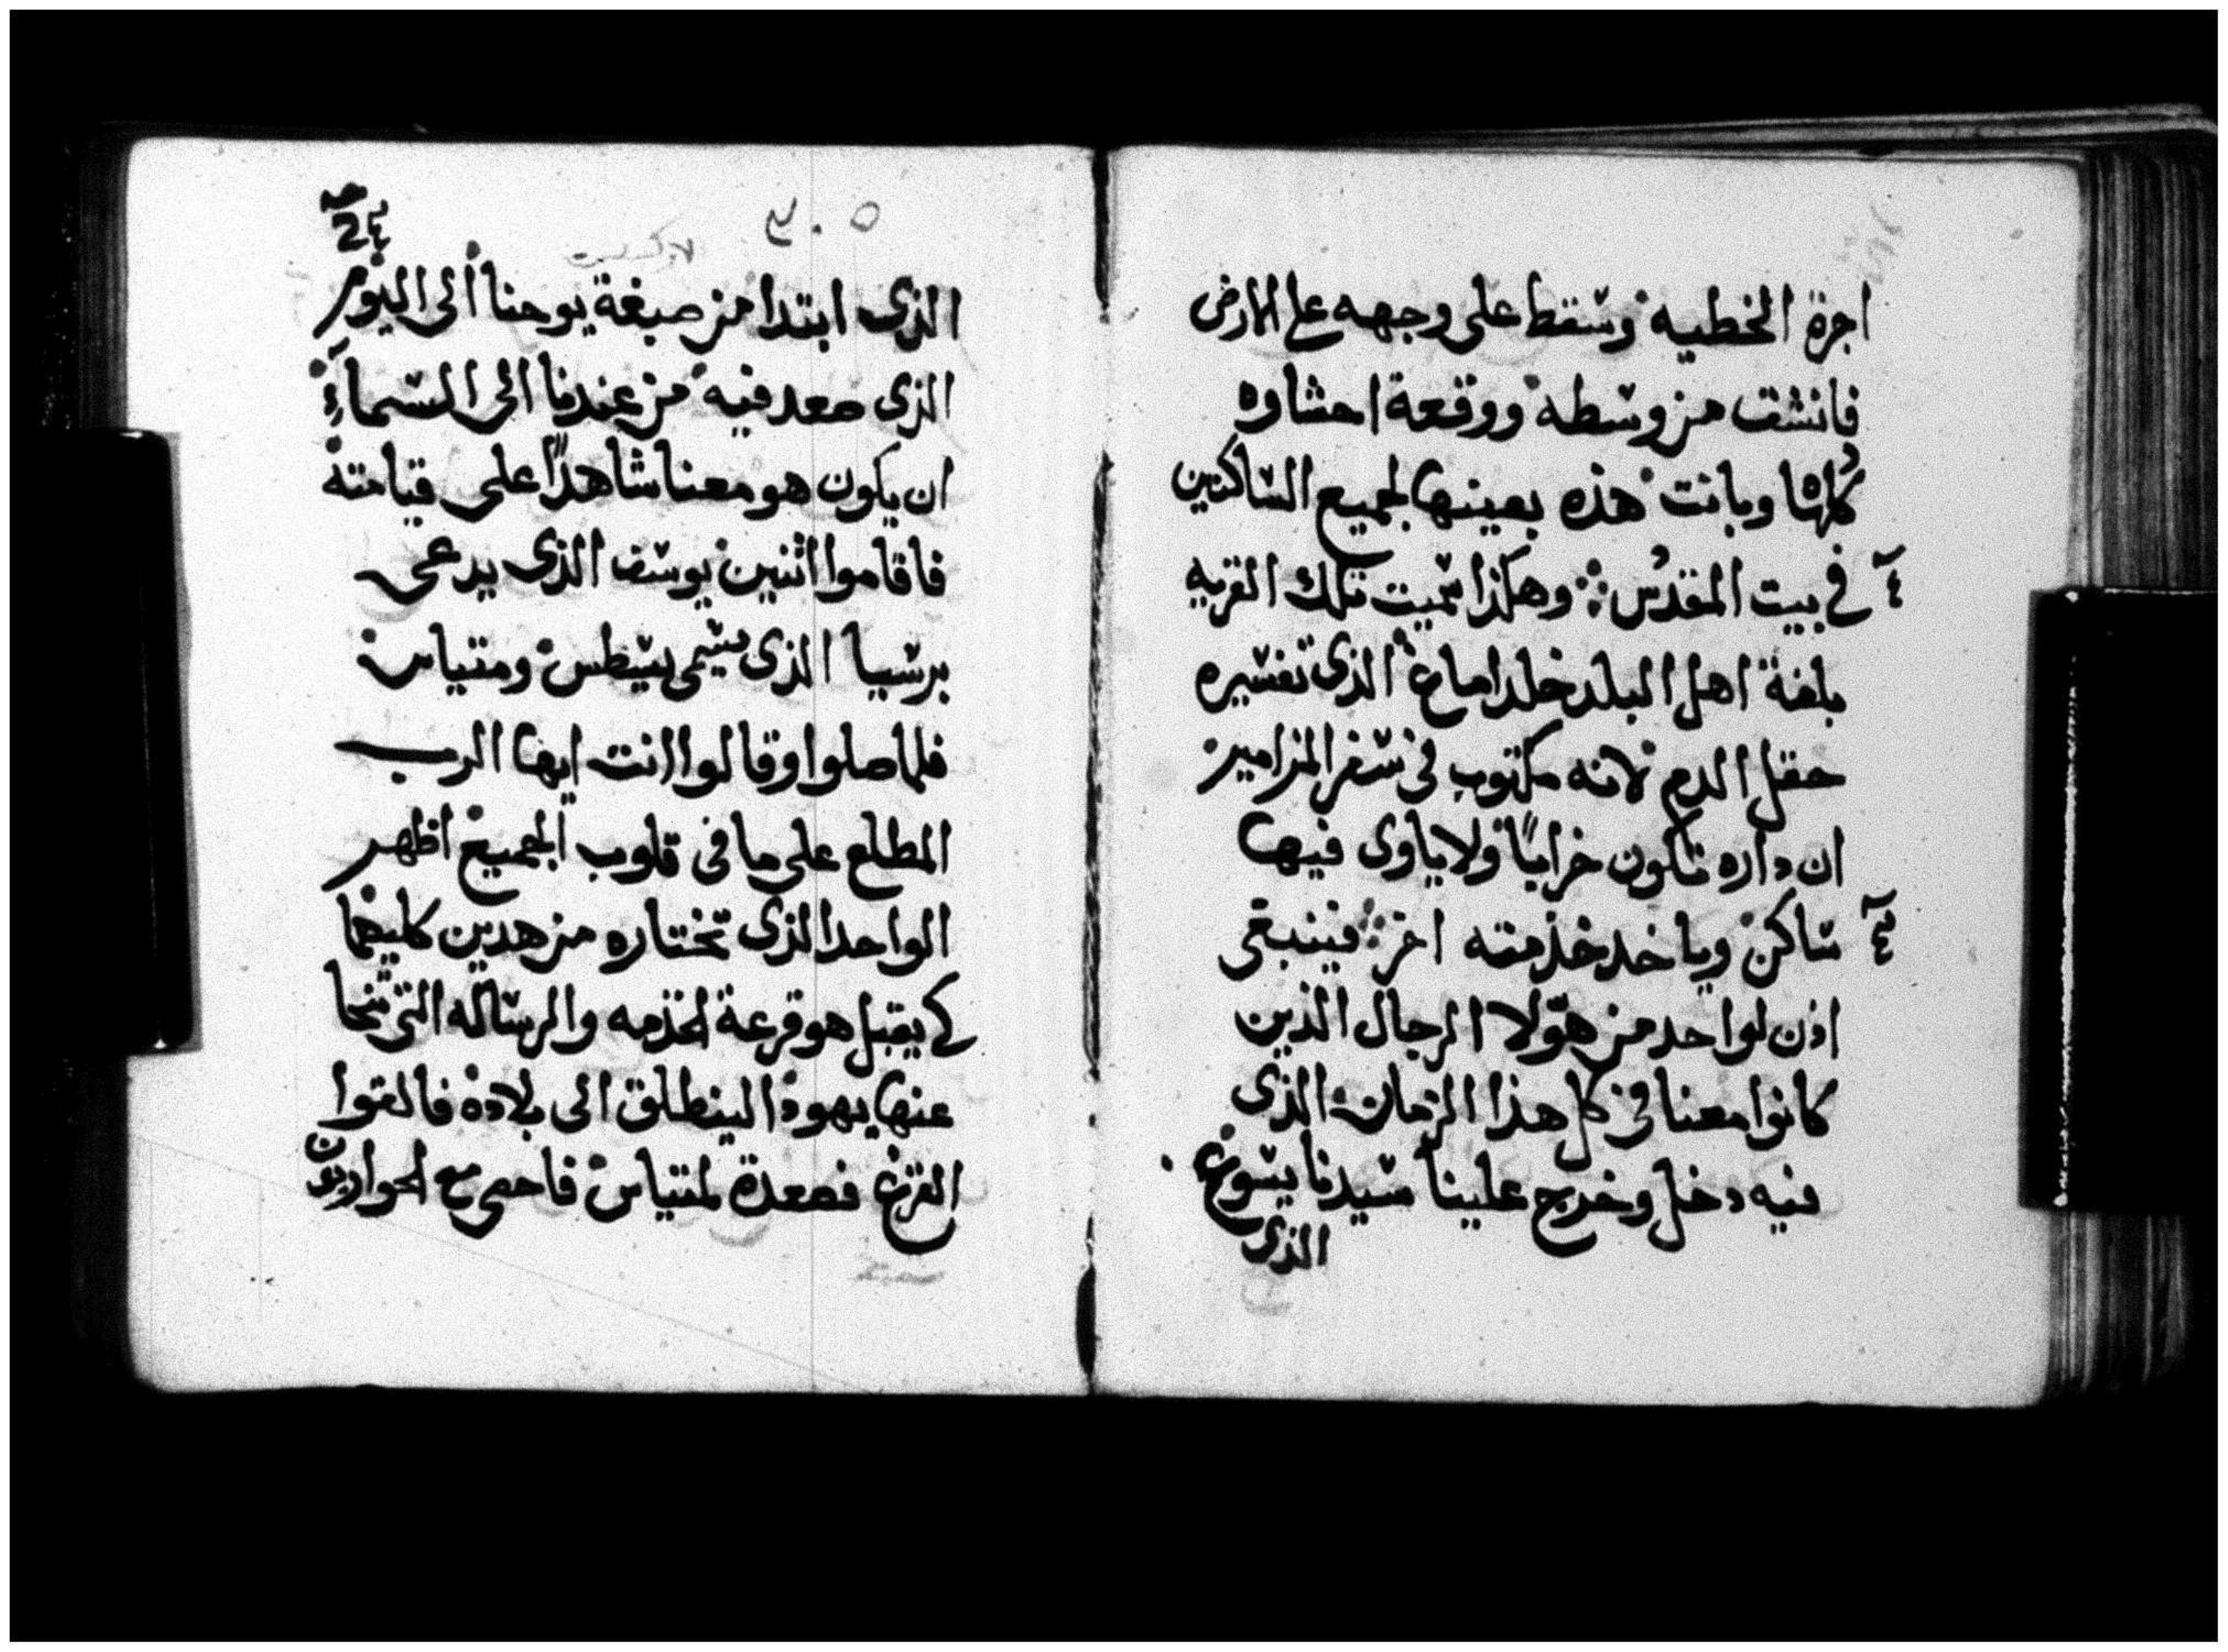 اجرة الخطيه وسقط على وجهه على الارض
فانشق من وسطه ووقعة احشاوه
كلها وبانت هذه بعينها لجميع الساكنين
في بيت المقدس وهكذا سميت تلك القريه
بلغة اهل البلد خلداماغ الذي تفسيره
حقل الدم لانه مكتوب في سفر المزامير
ان داره تكون خرابًا ولا ياوى فيها
ساكن وياخد خذمته اخر فينبغى
اذن لواحد من هولا الرجال الذين
كانوا معنا في كل هذا الزمان الذى
فيه دخل وخرج علينا سيدنا يسوع
الذى
٣٠٥
الذى ابتدا من صبغة يوحنا الى اليوم
الذى صعد فيه من عندنا الى السمآء
ان يكون هو معنا شاهدًا على قيامته
فاقاموا اثنين يوسف الذى يدعى
برسبا الذى يسمى يسطس ومتياس
فلما صلوا وقالوا انت ايها الرب
المطلع على ما في قلوب الجميع اظهر
الواحد الذى تختاره من هدين كليهما
كي يقبل هو قرعة لخذمه والرساله التي تنحا
عنها يهودا لينطلق الى بلاده فالقوا
القرع فصعدة لمتياس فاحصى مع الحواريون